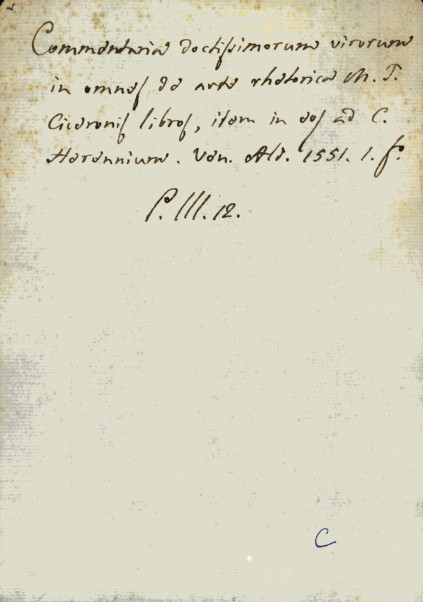 Commentaria doctissimorum virorum
in omnes de arte rhetorica M. T.
Ciceronis libros, item in eos ad C.
Herennium. Ven. Ald. 1551. 1. fo.
P. III. 12.
C